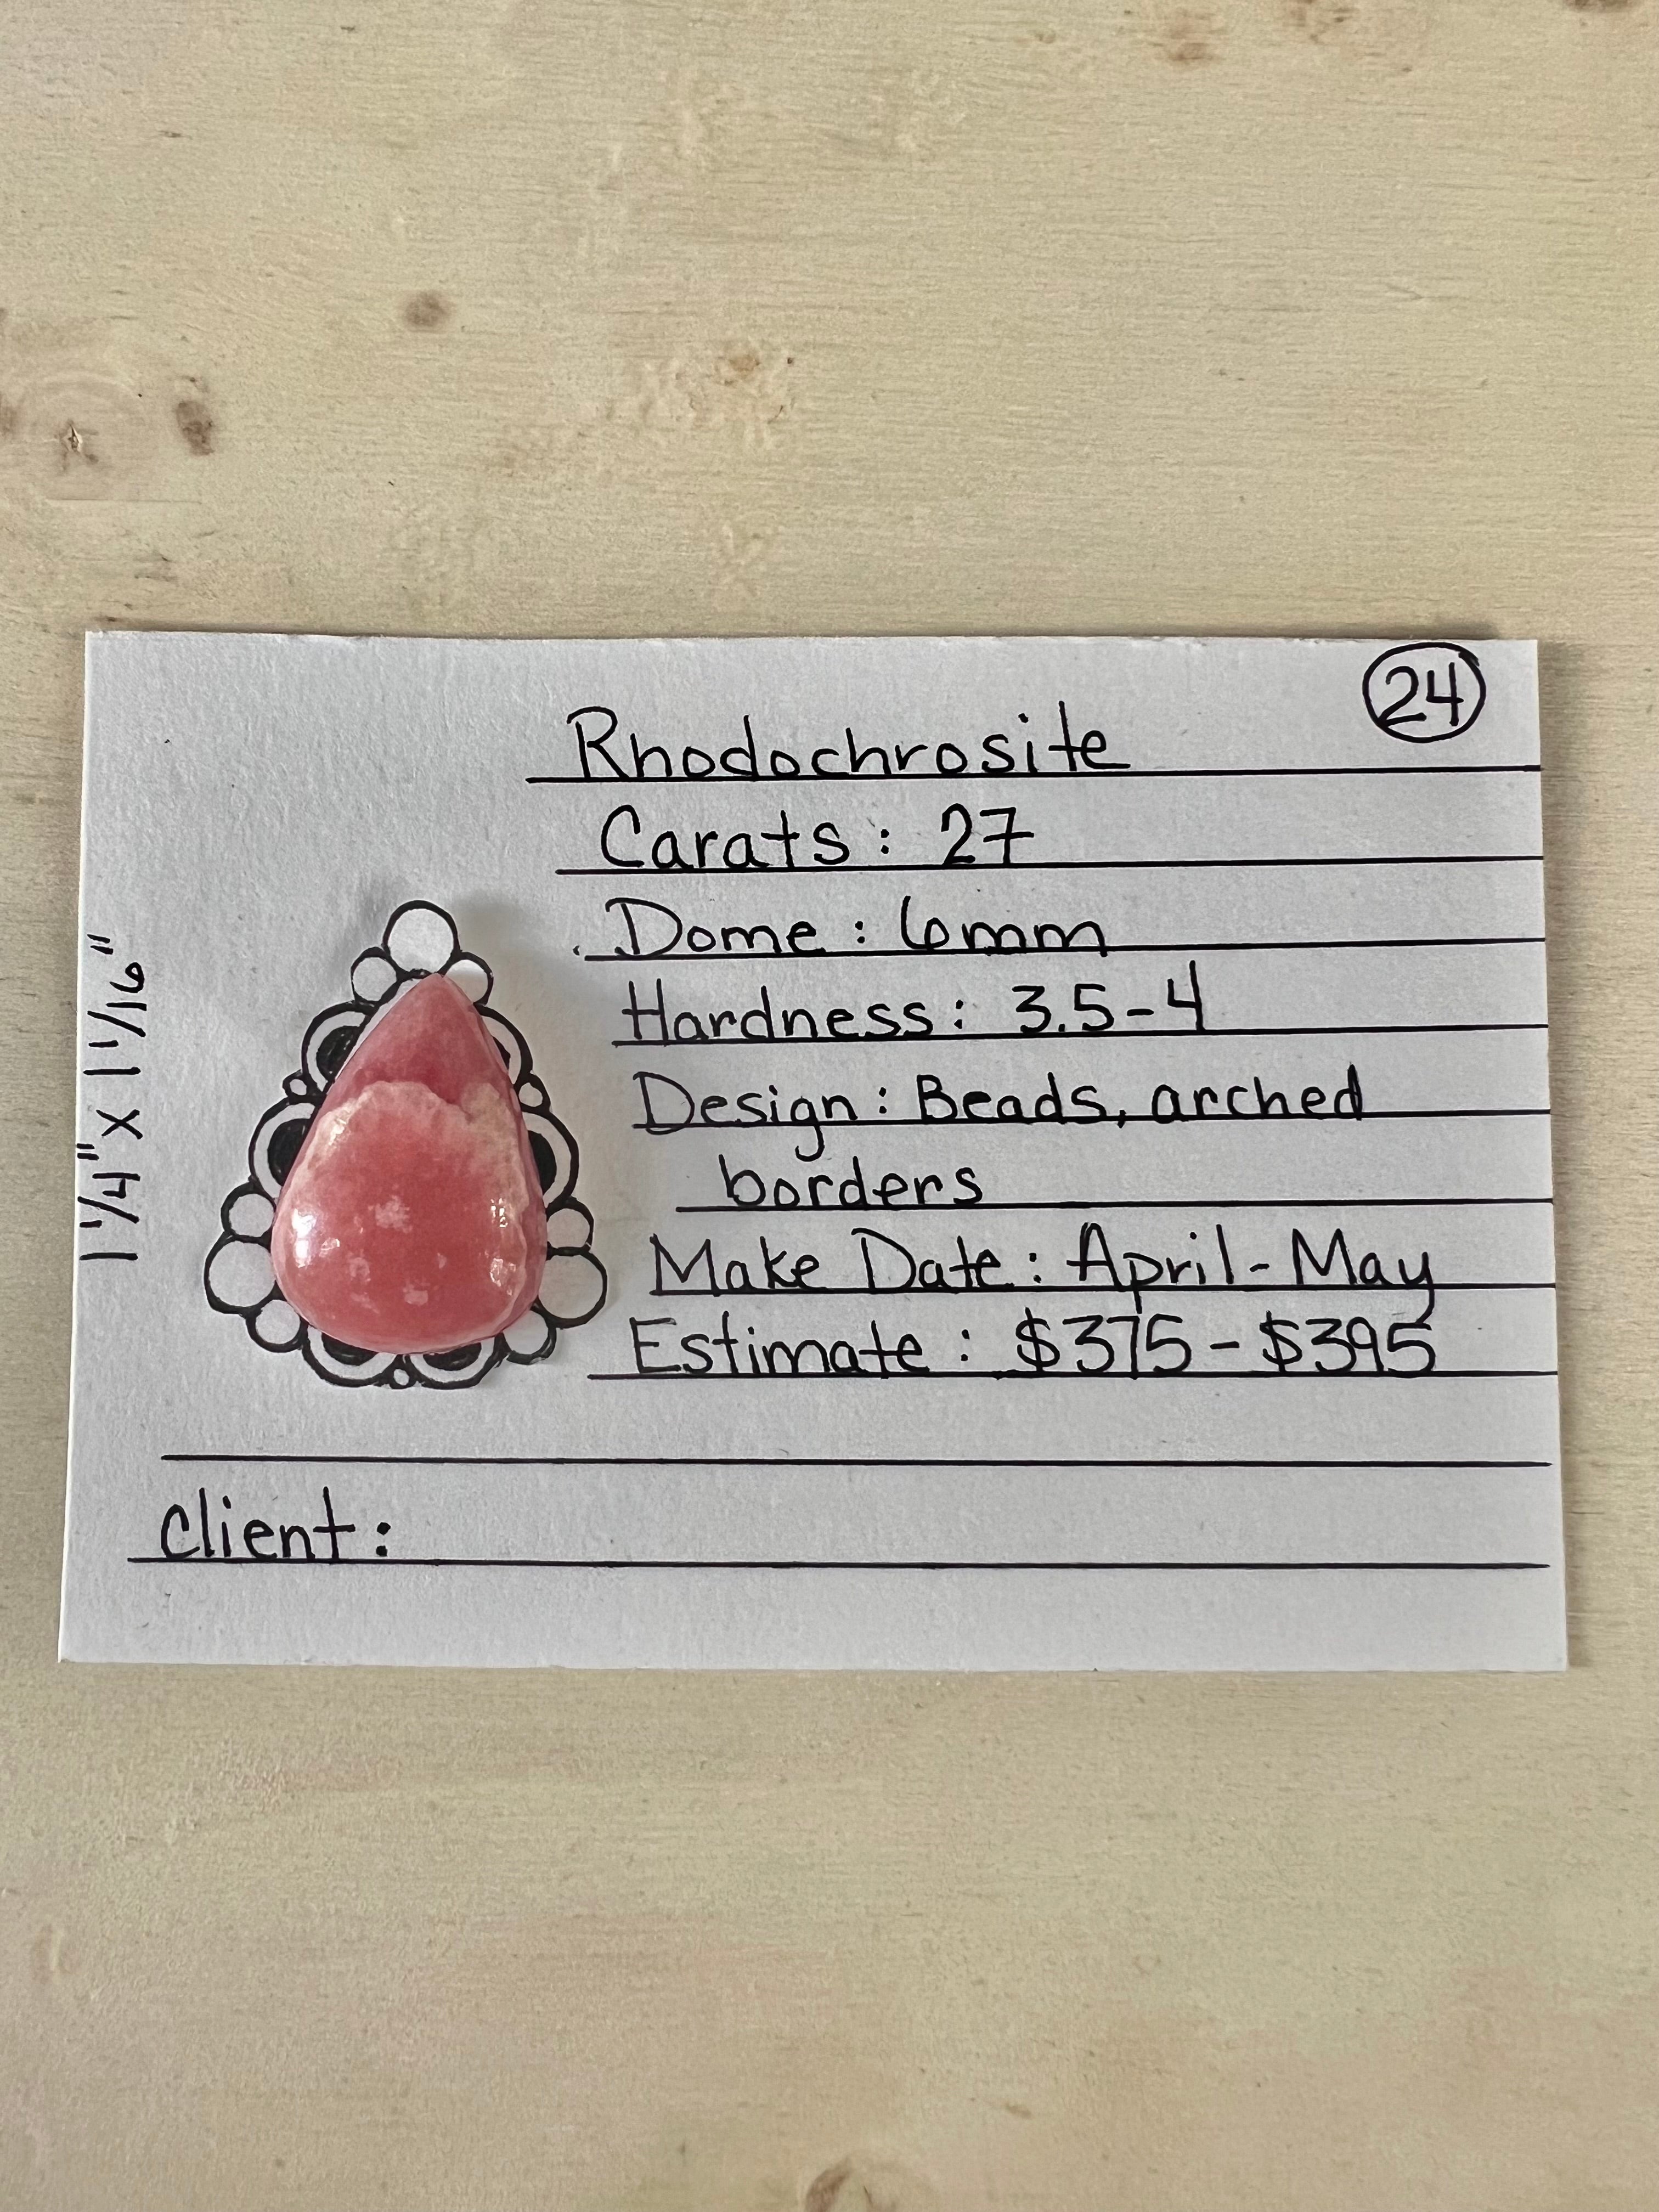 24
Rhodochrosite
Carats: 27
Dome: 6mm
Hardness: 3.5-4
Design: Beads, arched
borders
Make Date: April-May
Estimate: $375-$395
Client:
1 1/4" x 1 1/16"